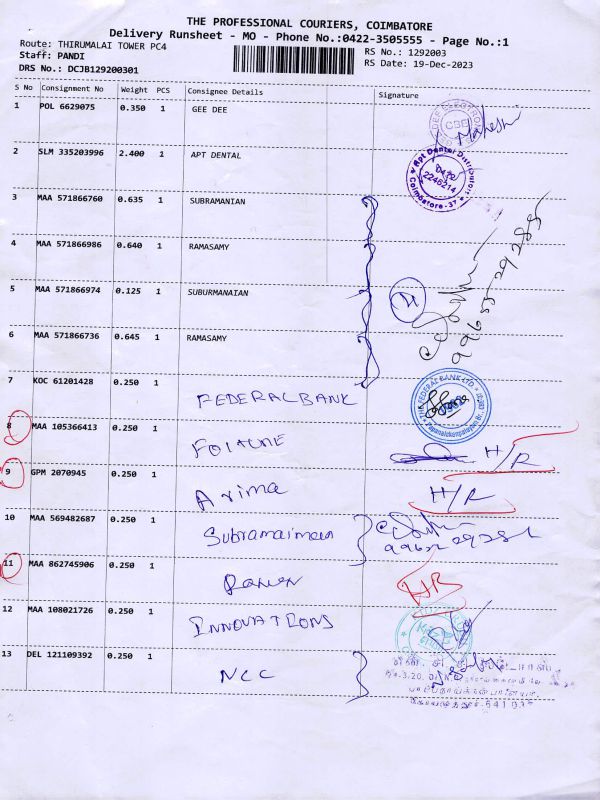 THE PROFESSIONAL COURIERS, COIMBATORE
Delivery Runsheet - MO - Phone No.:0422-3505555 - Page No.:1
Route: THIRUMALAI TOWER PC4
Staff: PANDI
DRS No.: DCJB129200301
RS No.: 1292003
RS Date: 19-Dec-2023
S No Consignment No Weight PCS Consignee Details Signature
1 POL 6629075 0.350 1 GEE DEE
CBE
Mahesh
2 SLM 335203996 2.400 1 APT DENTAL
Apt Dental Distributors
2246214
Coimbatore-37
3 MAA 571866760 0.635 1 SUBRAMANIAN
4 MAA 571866986 0.640 1 RAMASAMY
5 MAA 571866974 0.125 1 SUBURMANAIAN
6 MAA 571866736 0.645 1 RAMASAMY
7 KOC 61201428 0.250 1 FEDERAL BANK
THE FEDERAL BANK LTD.
8 MAA 105366413 0.250 1 H/R
9 GPM 2070945 0.250 1 Arima H/R
10 MAA 569482687 0.250 1
11 MAA 862745906 0.250 1
12 MAA 108021726 0.250 1 INNOVATIONS
13 DEL 121109392 0.250 1 NCC